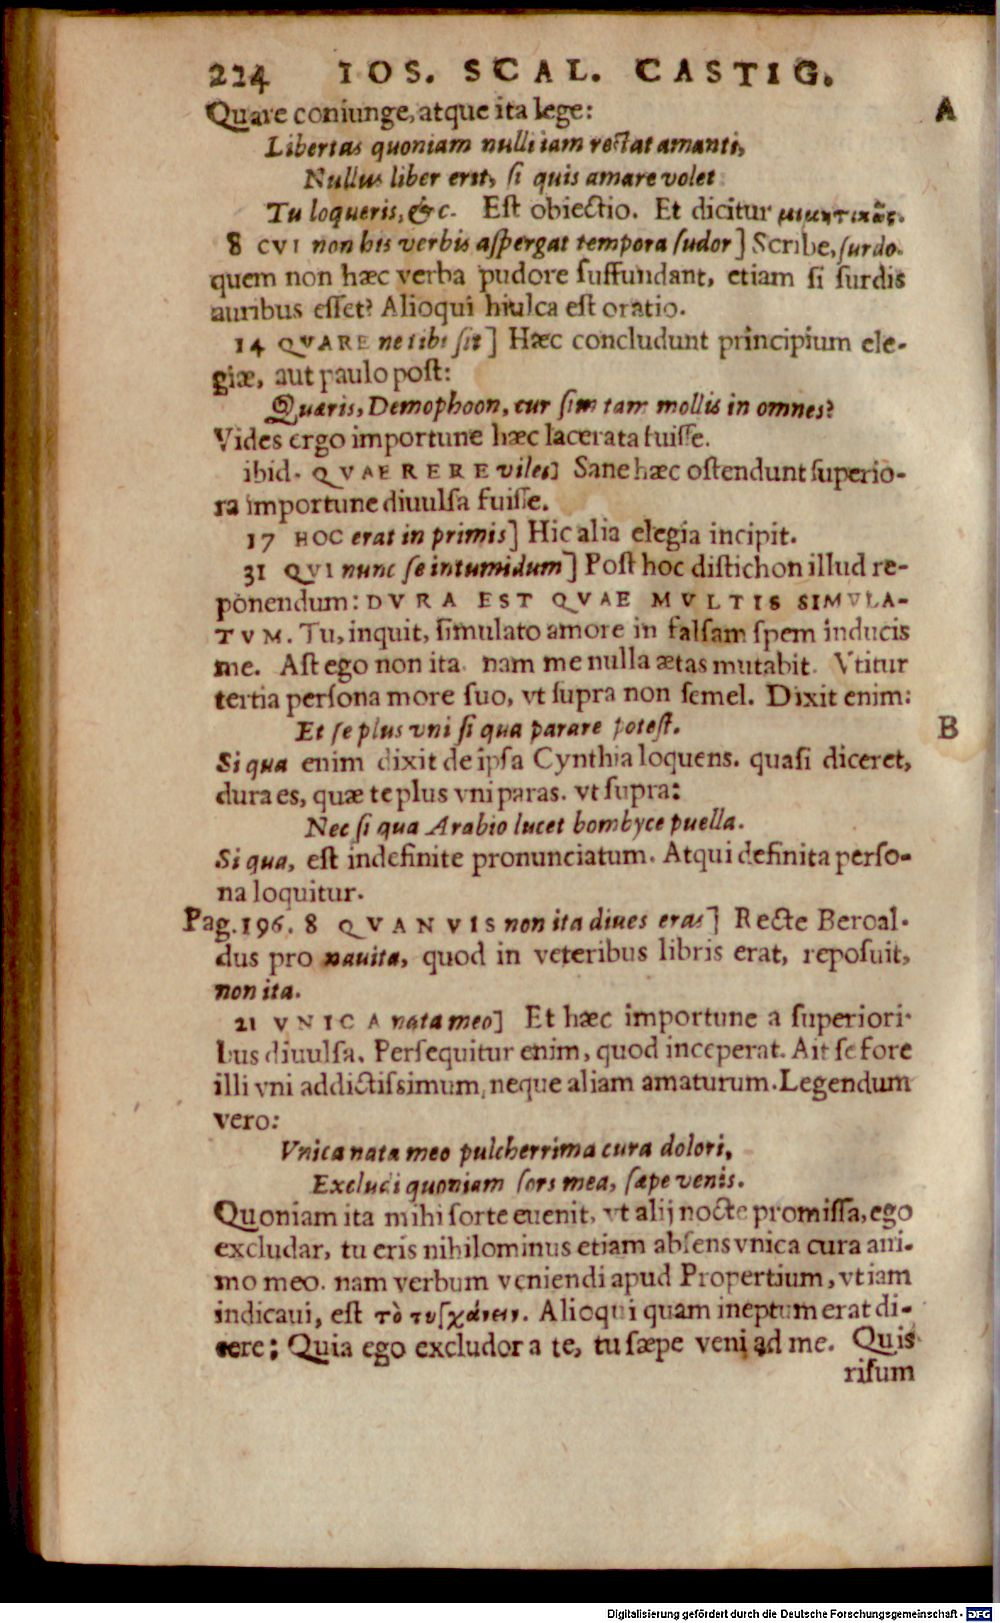 224 IOS. SCAL. CASTIG.
Quare coniunge, atque ita lege: A
Libertas quoniam nulli iam restat amanti,
Nullus liber erit, si quis amare volet.
Tu loqueris, &c. Est obiectio. Et dicitur μιμητικῶς.
8 CVI non his verbis aspergat tempora sudor] Scribe, surdo.
quem non hæc verba pudore suffundant, etiam si surdis
auribus esset? Alioqui hiulca est oratio.
14 QVARE ne tibi sit] Hæc concludunt principium ele-
giæ, aut paulo post:
Quæris, Demophoon, cur sim tam mollis in omnes?
Vides ergo importune hæc lacerata fuisse.
ibid. QVAERERE viles] Sane hæc ostendunt superio-
ra importune diuulsa fuisse.
17 HOC erat in primis] Hic alia elegia incipit.
31 QVI nunc se intumidum] Post hoc distichon illud re-
ponendum: DVRA EST QVAE MVLTIS SIMVLA-
TVM. Tu, inquit, simulato amore in falsam spem inducis
me. Ast ego non ita. nam me nulla ætas mutabit. Vtitur
tertia persona more suo, vt supra non semel. Dixit enim:
Et se plus vni si qua parare potest. B
Si qua enim dixit de ipsa Cynthia loquens. quasi diceret,
dura es, quæ te plus vni paras. vt supra:
Nec si qua Arabio lucet bombyce puella.
Si qua, est indefinite pronunciatum. Atqui definita perso-
na loquitur.
Pag. 196. 8 QVANVIS non ita diues eras] Recte Beroal-
dus pro nauita, quod in veteribus libris erat, reposuit,
non ita.
21 VNICA nata meo] Et hæc importune a superiori-
bus diuulsa. Persequitur enim, quod inceperat. Ait se fore
illi vni addictissimum, neque aliam amaturum. Legendum
vero:
Vnica nata meo pulcherrima cura dolori,
Excludi quoniam sors mea, sæpe venis.
Quoniam ita mihi sorte euenit, vt alij nocte promissa, ego
excludar, tu eris nihilominus etiam absens vnica cura ani-
mo meo. nam verbum veniendi apud Propertium, vt iam
indicaui, est τὸ τυγχάνειν. Alioqui quam ineptum erat di-
cere: Quia ego excludor a te, tu sæpe veni ad me. Quis
risum
Digitalisierung gefördert durch die Deutsche Forschungsgemeinschaft - DFG